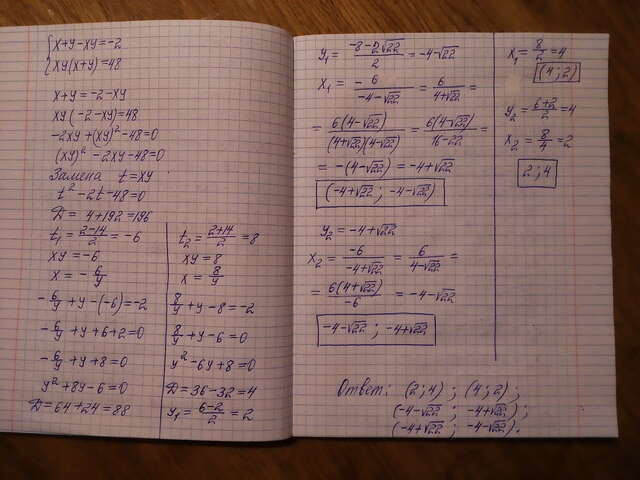 { x+y-xy=-2
{ xy(x+y)=48
x+y=-2-xy
xy(-2-xy)=48
-2xy+(xy)²-48=0
(xy)²-2xy-48=0
Замена t=xy
t²-2t-48=0
D= 4+192=196
t₁=(2-14)/2=-6
xy=-6
x=-6/y
-6/y+y-(-6)=-2
-6/y+y+6+2=0
-6/y+y+8=0
y²+8y-6=0
D=64+24=88
t₂=(2+14)/2=8
xy=8
x=8/y
8/y+y-8=-2
8/y+y-6=0
y²-6y+8=0
D=36-32=4
y₁=(6-2)/2=2
y₁=(-8-2√22)/2=-4-√22
x₁=-6/(-4-√22)=6/(4+√22)=
=6(4-√22)/((4+√22)(4-√22))=6(4-√22)/(16-22)=
=-(4-√22)=-4+√22
(-4+√22; -4-√22)
y₂=-4+√22
x₂=-6/(-4+√22)=6/(4-√22)=
=6(4+√22)/-6=-4-√22
-4-√22; -4+√22
x₁=8/2=4
(4;2)
y₂=(6+2)/2=4
x₂=8/4=2
2;4
Ответ: (2;4); (4;2);
(-4-√22; -4+√22);
(-4+√22; -4-√22).